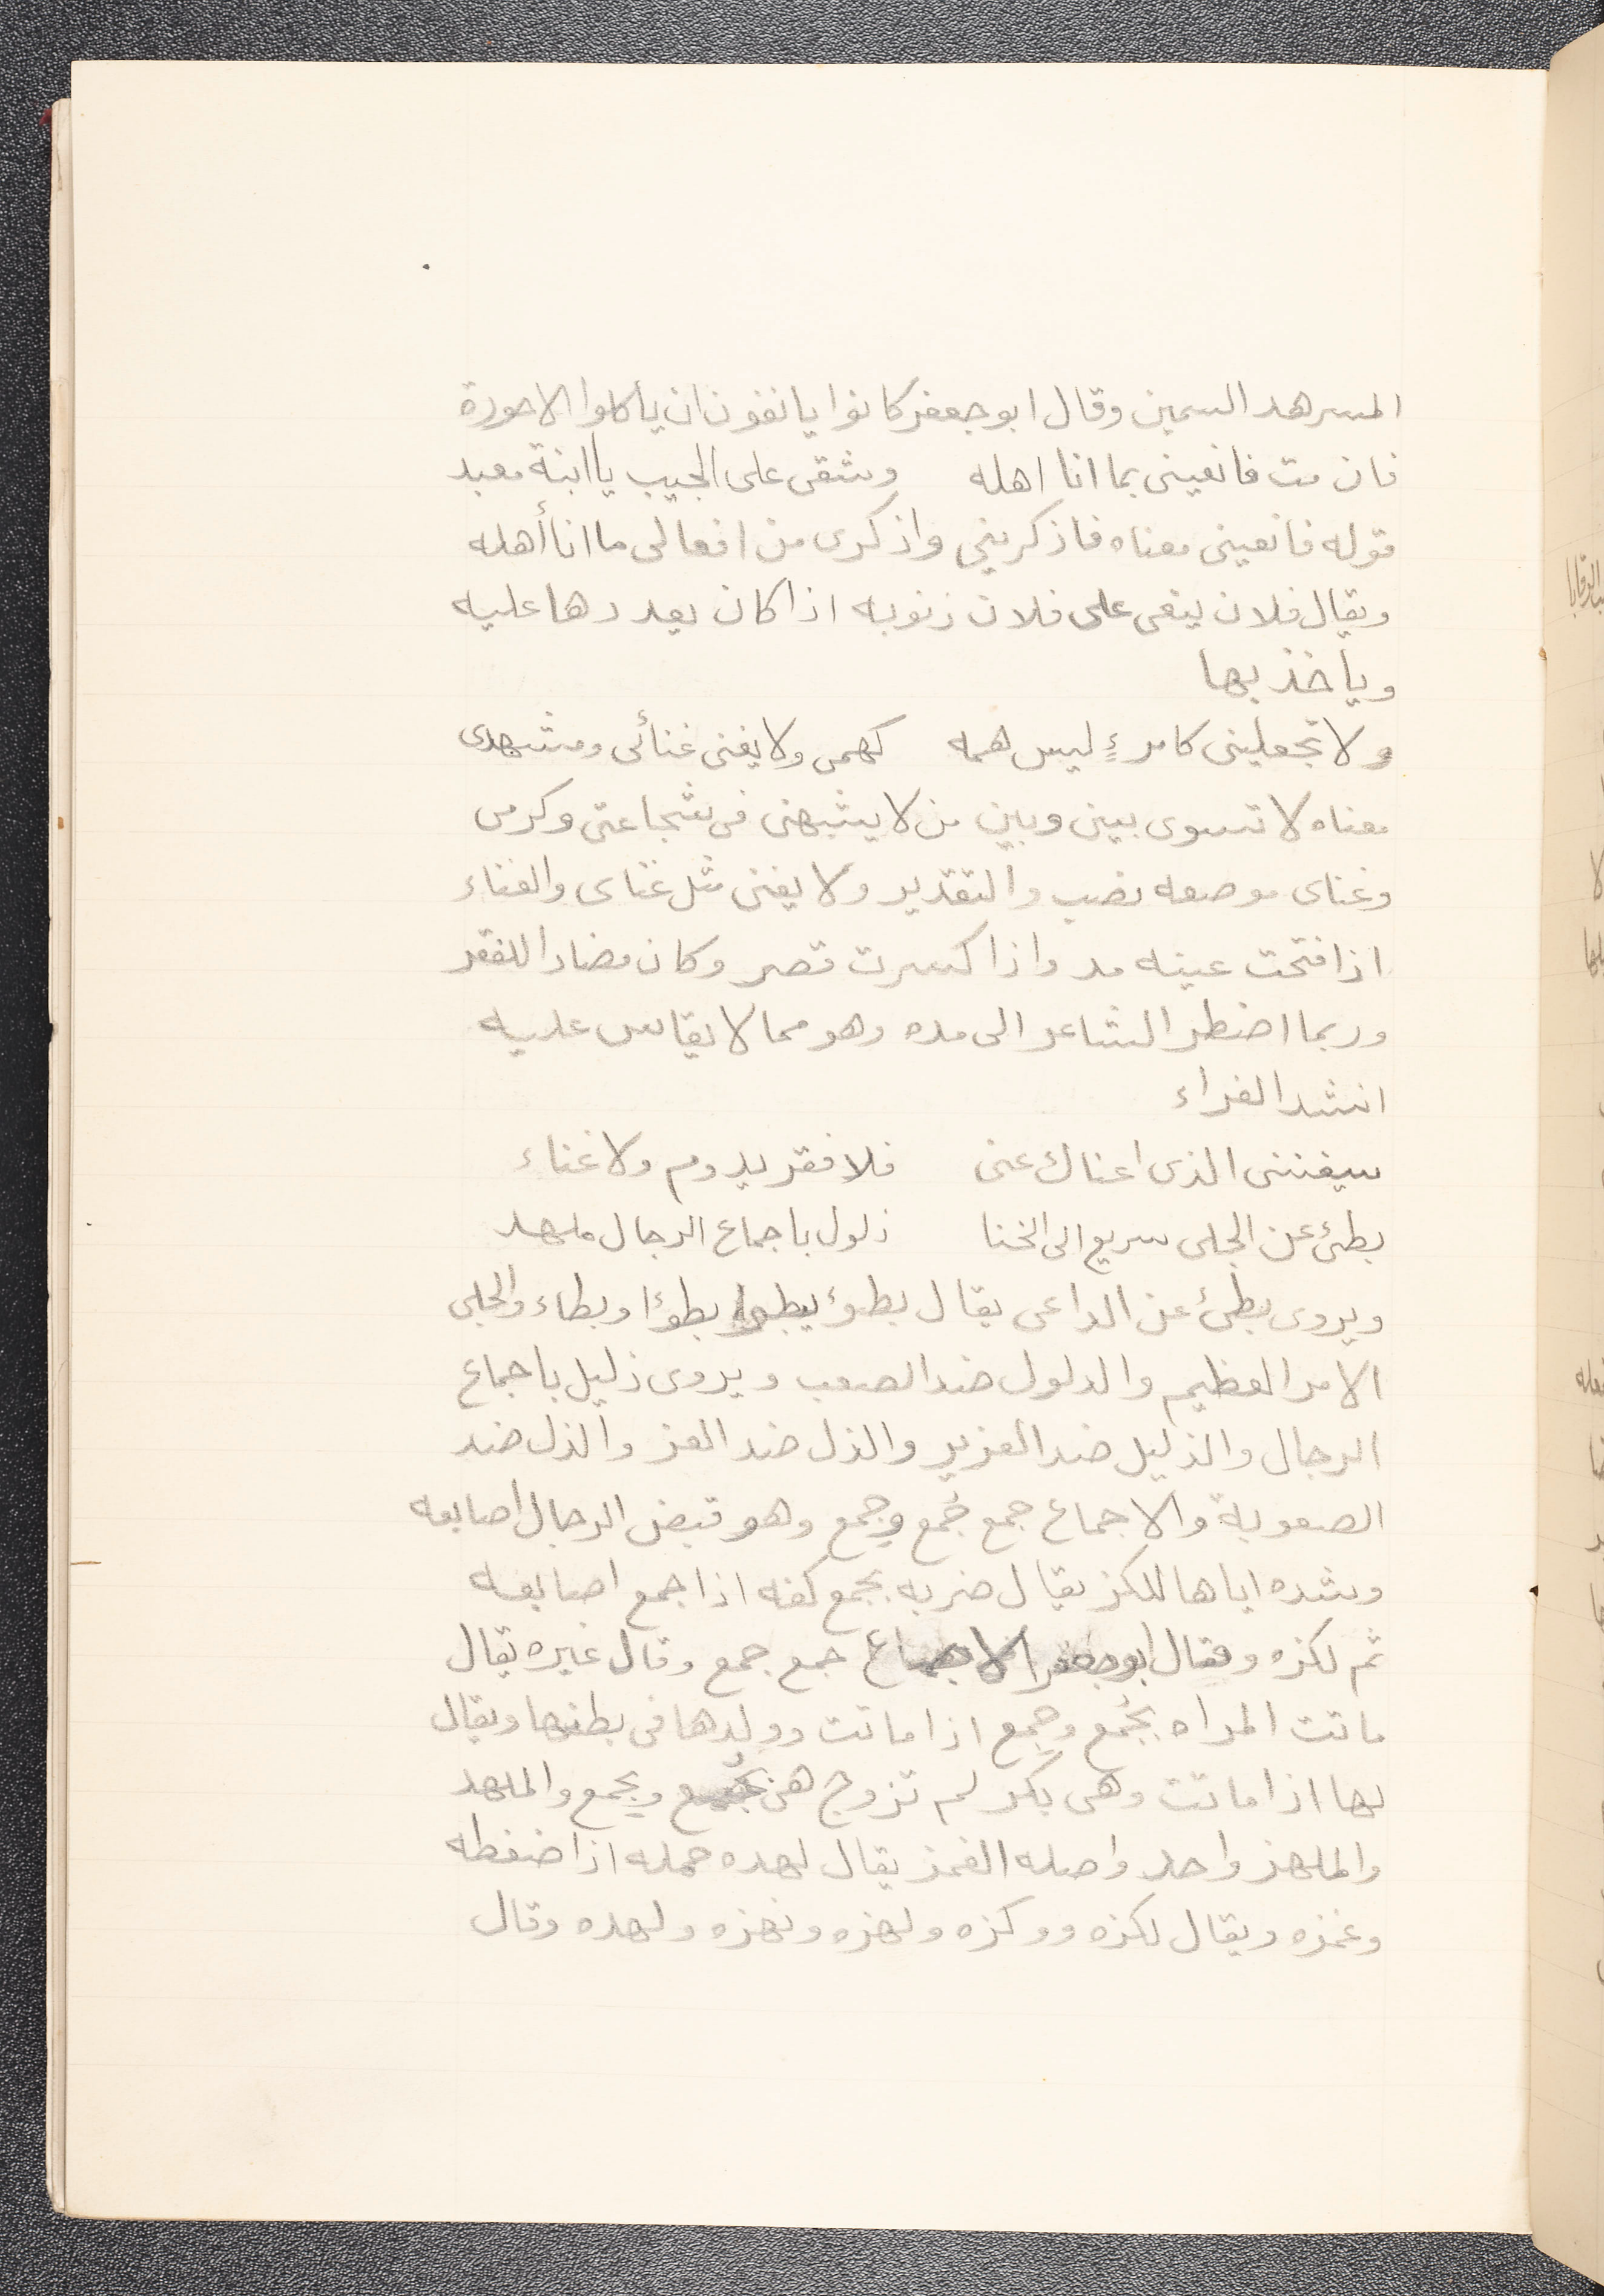 المسرهد السمين وقال ابو جعفر كانوا يانفون ان ياكلوا الاحورة
فان مت فانعينى بما انا اهله وشقى على الجيب يا ابنة معبد
قوله فانعينى معناه فاذكريني واذكرى من افعالى ما انا أهله
ويقال فلان ينعى على فلان ذنوبه اذا كان يعددها عليه
وياخذ بها
ولا تجعلينى كامرءٍ ليس همه كهمى ولا يغنى غنائى ومشهدى
معناه لا تسوى بينى وبين من لا يشبهنى فى شجاعتى وكرمى
وغناى موصعه نصب والتقدير ولا يغنى مثل غناى والغناء
اذا فتحت عينه مد واذا كسرت قصر وكان مضادا للفقر
وربما اضطر الشاعر الى مده وهو مما لا يقاس عليه
انشد الفراء
سيغننى الذى اغناك عنى فلا فقر يدوم ولا غناء
بطئ عن الجلى سريع الى الخنا ذلول باجماع الرجال ملهد
ويروى بطئ عن الداعى يقال بطوء يبطوا بطوءا وبطاء والجلى
الامر العظيم والدلول ضد الصعب ويروى ذليل باجماع
الرجال والذليل ضد العزيز والذل ضد العز والذل ضد
الصعوبة والاجماع جمع جُمع وجمع وهو قبض الرجال اصابعه
وشده اياها للكز يقال ضربه بجمع كفه اذا جمع اصابعه
ثم لكزه وقال ابو جعفر الاجماع جمع جمع وقال غيره يقال
ماتت المراه بجُمع وجِمع اذا ماتت وولدها فى بطنها ويقال
لها اذا ماتت وهى بكر لم تزوج هى بجُمع وبجمع والملهد
والملهز واحد واصله الغمز يقال لهده حمله اذا ضغطه
وغمزه ويقال لكزه ووكزه ولهزه ونهزه ولهده وقال